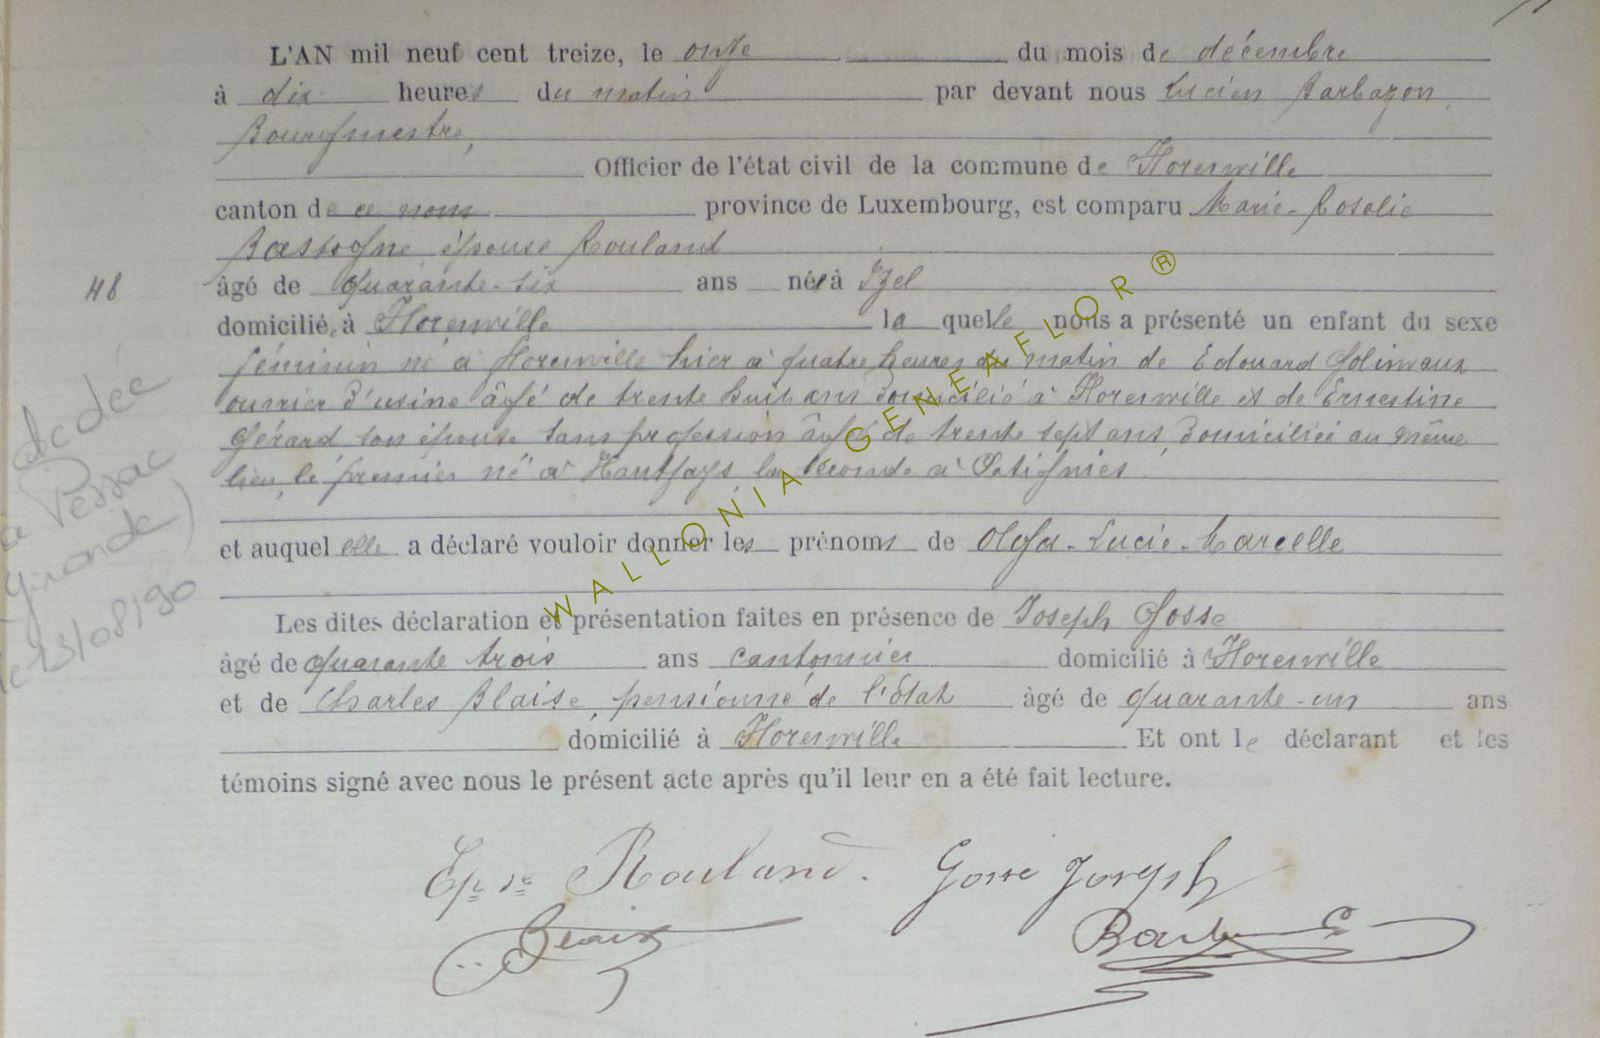 L'AN mil neuf cent treize, le onze du mois de décembre
à dix heures du matin par devant nous Lucien Barbazon
Bourgmestre,
Officier de l'état civil de la commune de Florenville
canton de ce nom province de Luxembourg, est comparu Marie-Rosalie
Bastogne, épouse Rouland
48
âgé de quarante-six ans née à Izel
domicilié, à Florenville laquelle nous a présenté un enfant du sexe
féminin né à Florenville hier à quatre heures du matin de Edouard Golinvaux
ouvrier d'usine âgé de trente huit ans domicilié à Florenville et de Ernestine
Gérard son épouse sans profession âgée de trente sept ans, domiciliée au même
lieu, le premier né à Hautfays, la seconde à Patignies
et auquel elle a déclaré vouloir donner les prénoms de Olga-Lucie-Marcelle
Les dites déclaration et présentation faites en présence de Joseph Gosse
âgé de quarante trois ans cantonnier domicilié à Florenville
et de Charles Blaise, pensionné de l'Etat âgé de quarante-un ans
domicilié à Florenville Et ont le déclarant et les
témoins signé avec nous le présent acte après qu'il leur en a été fait lecture.
Ep. se Rouland. Gosse Joseph
Blaise
décédée
à Pessac
(Gironde)
le 13/08/90
WALLONIA-GENEAFLOR®